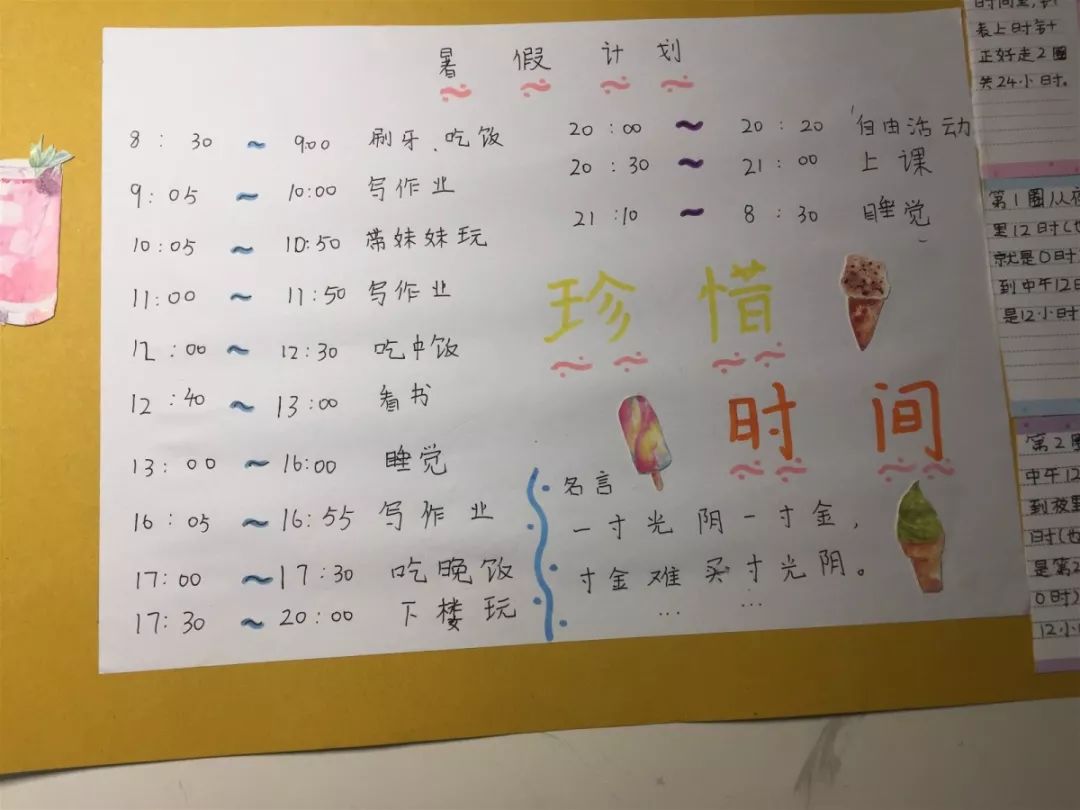 暑假计划
8:30 ~ 9:00 刷牙、吃饭
9:05 ~ 10:00 写作业
10:05 ~ 10:50 带妹妹玩
11:00 ~ 11:50 写作业
12:00 ~ 12:30 吃中饭
12:40 ~ 13:00 看书
13:00 ~ 16:00 睡觉
16:05 ~ 16:55 写作业
17:00 ~ 17:30 吃晚饭
17:30 ~ 20:00 下楼玩
20:00 ~ 20:20 自由活动
20:30 ~ 21:00 上课
21:10 ~ 8:30 睡觉
珍惜
时间
名言
一寸光阴一寸金,
寸金难买寸光阴。
... ...
时间里,
表上时针
正好走2圈
共24小时。
第1圈从夜
里12时(也
就是0时)
到中午12时
是12小时
第2圈
中午12
到夜里
时(也
是第2
0时)
12小